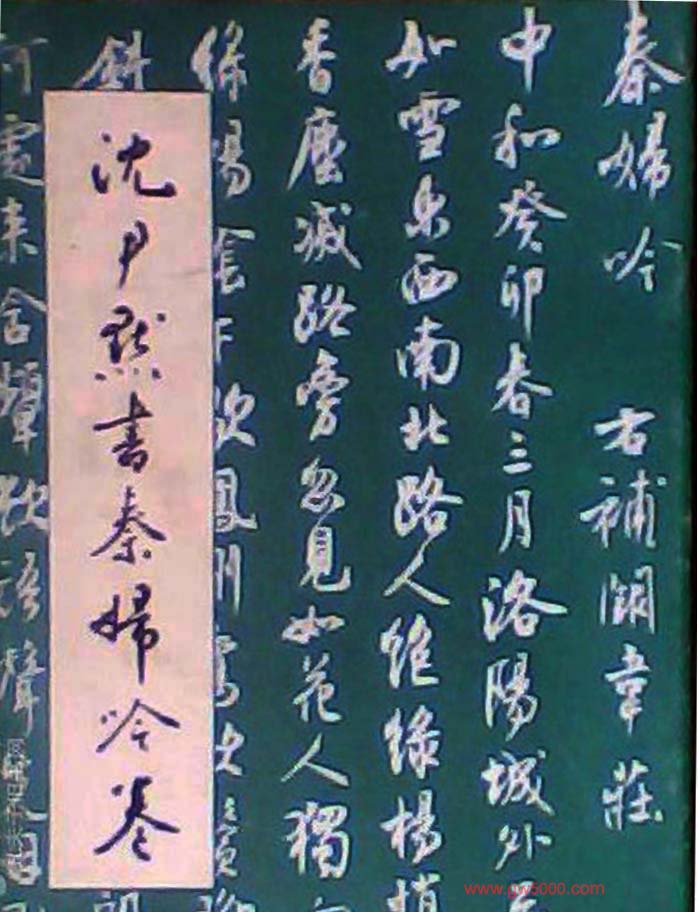 秦婦吟 右補闕韋莊
中和癸卯春三月洛陽城外
如雪東西南北路人絕綠楊悄
香塵滅路旁忽見如花人獨
綠楊陰下歇鳳側鸞欹鬢
斜
何處來含嚬欲語聲
沈尹默書秦婦吟卷
孔夫子旧书网